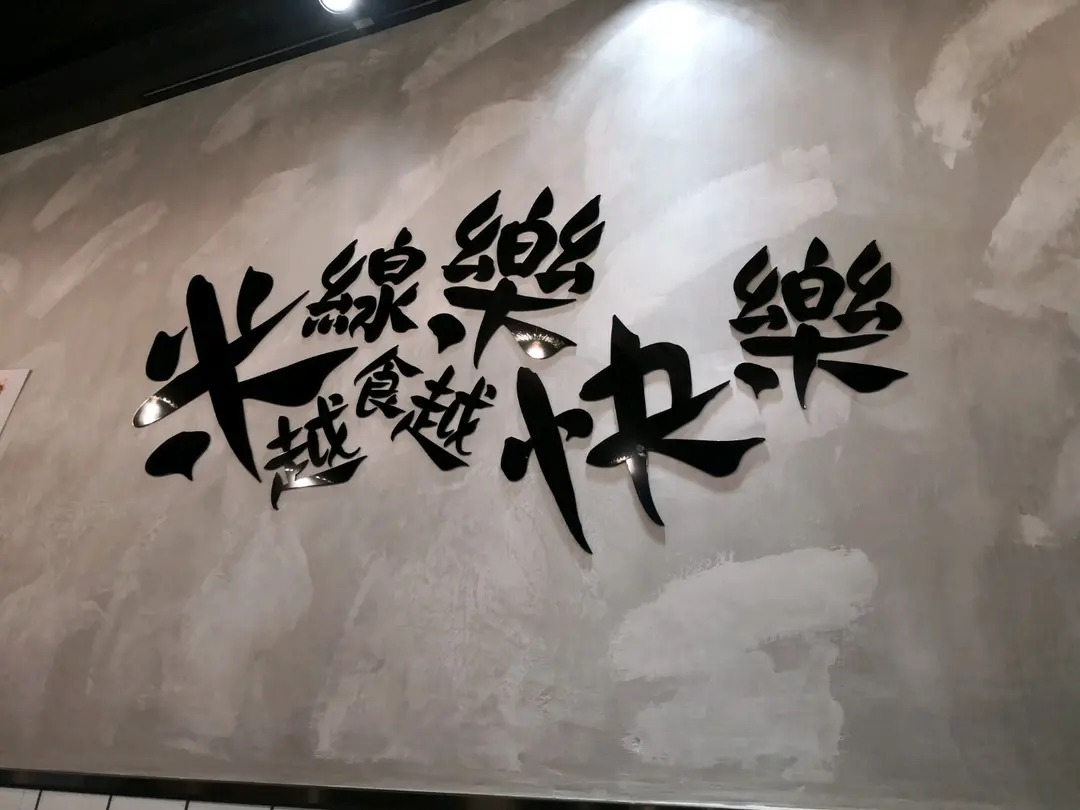 米線樂
越食越快樂